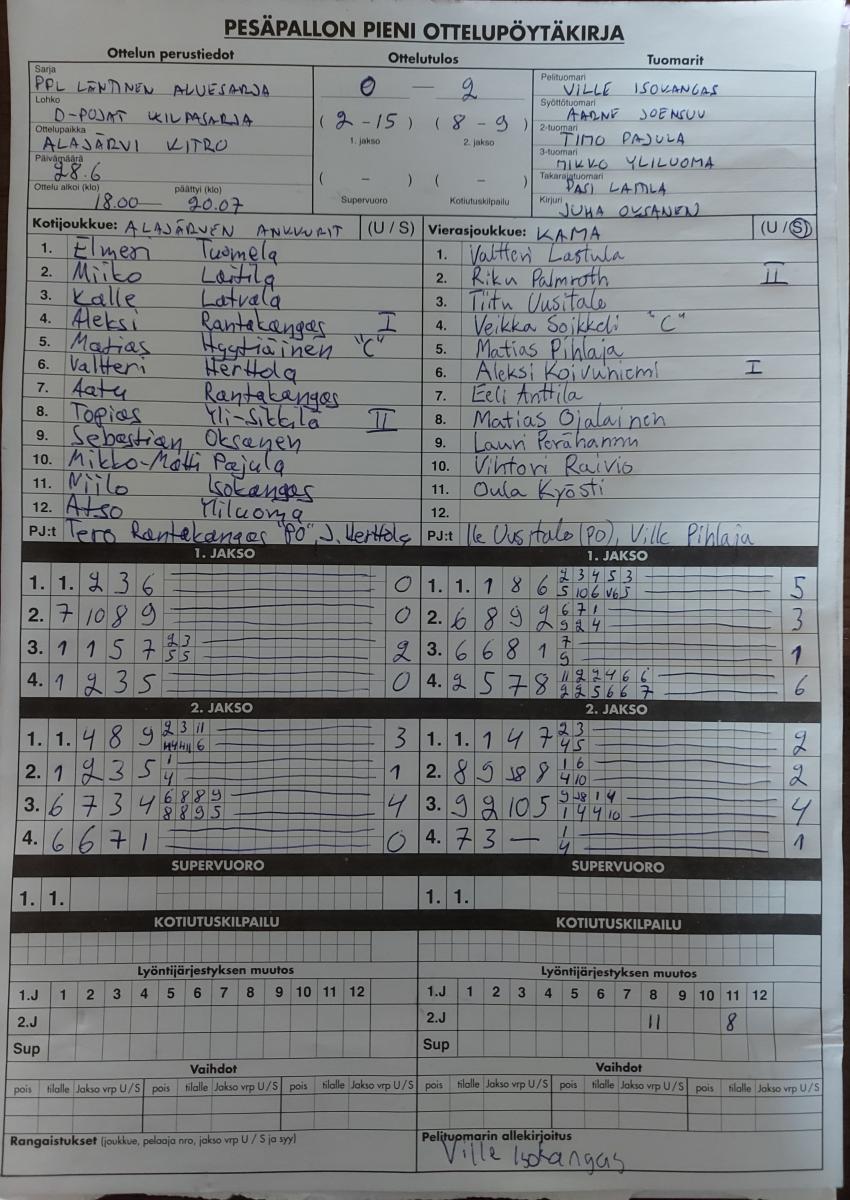 PESÄPALLON PIENI OTTELUPÖYTÄKIRJA
Ottelun perustiedot Ottelutulos Tuomarit
Sarja
PPL LÄNTINEN ALUESARJA
Lohko
D-POJAT KILPASARJA
Ottelupaikka
ALAJÄRVI KITRO
Päivämäärä
28.6
Ottelu alkoi (klo) päättyi (klo)
18.00 — 20.07
0 — 2
( 2 - 15 ) ( 8 - 9 )
1. jakso 2. jakso
( - ) ( - )
Supervuoro Kotiutuskilpailu
Pelituomari
VILLE ISOKANGAS
Syöttötuomari
AARNE JOENSUU
2-tuomari
TIMO PAJULA
3-tuomari
MIKKO YLILUOMA
Takarajatuomari
PASI LAMLA
Kirjuri
JUHA OKSANEN
Kotijoukkue: ALAJÄRVEN ANKKURIT (U / S)
1. Elmeri Tuomela
2. Miiko Laitila
3. Kalle Latvala
4. Aleksi Rantakangas I
5. Matias Hyytiäinen "C"
6. Valtteri Herttola
7. Aatu Rantakangas
8. Topias Yli-Sikkilä II
9. Sebastian Oksanen
10. Mikko-Matti Pajula
11. Niilo Isokangas
12. Atso Yliluoma
PJ:t Tero Rantakangas "PO", J. Herttola
Vierasjoukkue: KAMA (U / S)
1. Valtteri Lastula
2. Riku Palmroth II
3. Tiitu Uusitalo
4. Veikka Soikkeli "C"
5. Matias Pihlaja
6. Aleksi Koivuniemi I
7. Eeli Anttila
8. Matias Ojalainen
9. Lauri Perähannu
10. Vihtori Raivio
11. Oula Kyösti
12.
PJ:t Ile Uusitalo (PO), Ville Pihlaja
1. JAKSO
1. 1. 2 3 6 0
2. 7 10 8 9 0
3. 1 1 5 7 2 3 2
5 5
4. 1 2 3 5 0
2. JAKSO
1. 1. 4 8 9 2 3 11 3
6
2. 1 2 3 5 1 1
4
3. 6 7 3 4 6 8 8 9 4
8 8 9 5
4. 6 6 7 1 0
SUPERVUORO
1. 1.
KOTIUTUSKILPAILU
1. JAKSO
1. 1. 1 8 6 2 3 4 5 3 5
5 10 6 5
2. 6 8 9 2 6 7 1 3
9 2 4
3. 6 6 8 1 7 1
9
4. 2 5 7 8 11 2 2 4 6 6 6
2 2 5 6 6 7
2. JAKSO
1. 1. 1 4 7 2 3 2
4 5
2. 8 9 8 1 6 2
4 10
3. 9 2 10 5 9 1 4 4
1 4 4 10
4. 7 3 — 1 1
4
SUPERVUORO
1. 1.
KOTIUTUSKILPAILU
Lyöntijärjestyksen muutos
1.J 1 2 3 4 5 6 7 8 9 10 11 12
2.J
Sup
Lyöntijärjestyksen muutos
1.J 1 2 3 4 5 6 7 8 9 10 11 12
2.J 11 8
Sup
Vaihdot
pois tilalle Jakso vrp U / S pois tilalle Jakso vrp U / S pois tilalle Jakso vrp U / S
Vaihdot
pois tilalle Jakso vrp U / S pois tilalle Jakso vrp U / S pois tilalle Jakso vrp U / S
Rangaistukset (joukkue, pelaaja nro, jakso vrp U / S ja syy)
Pelituomarin allekirjoitus
Ville Isokangas